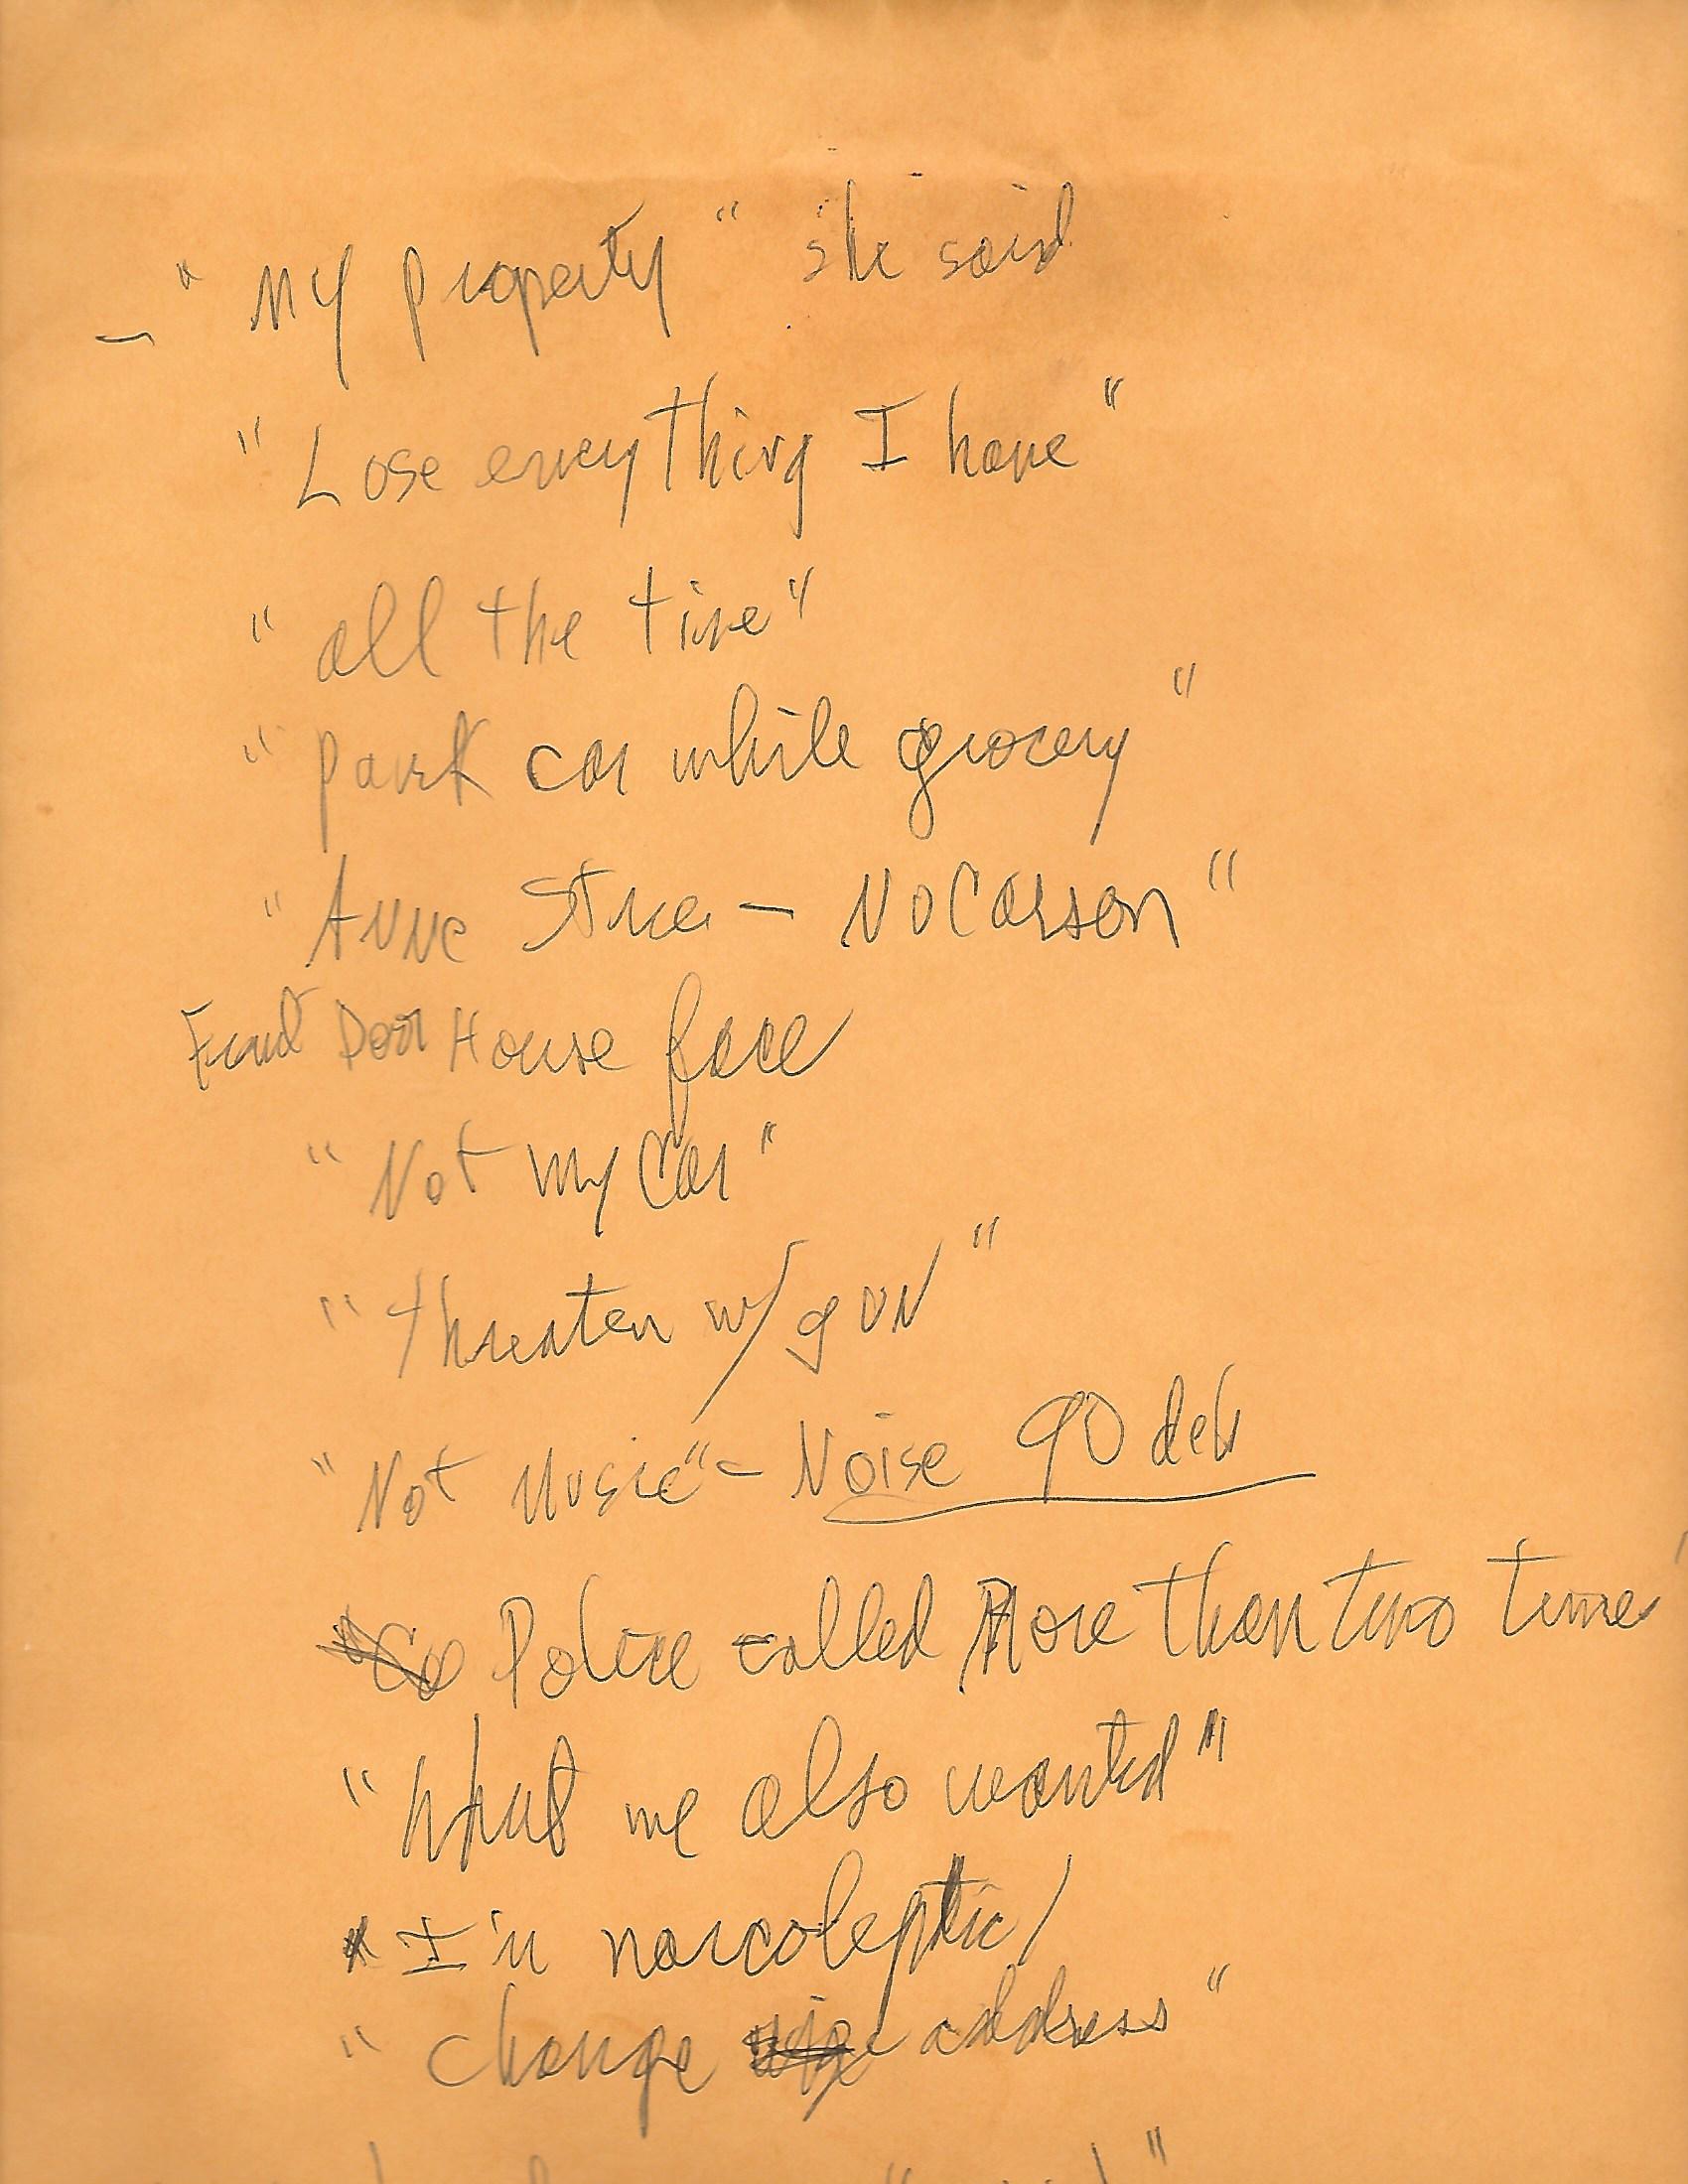 – "My property" she said
"Lose everything I have"
"all the time"
"park car while grocery"
"Anne – No Carson"
Front Door House face
"Not my Car"
"threaten w/ gun"
"Not Music" – Noise 90 deb
Police called More than two times
"What we also wanted"
"I'm narcoleptic/
"change address"